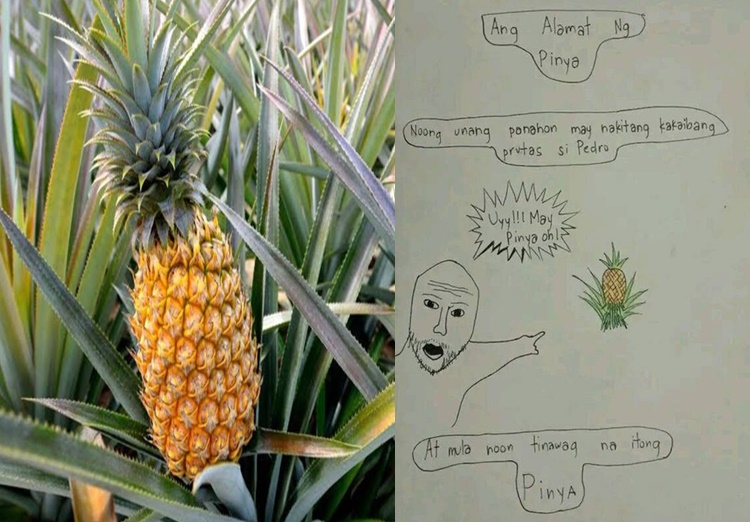 Ang Alamat Ng
Pinya
Noong unang panahon may nakitang kakaibang
prutas si Pedro
Uyy!!! May
Pinya oh!
At mula noon tinawag na itong
Pinya